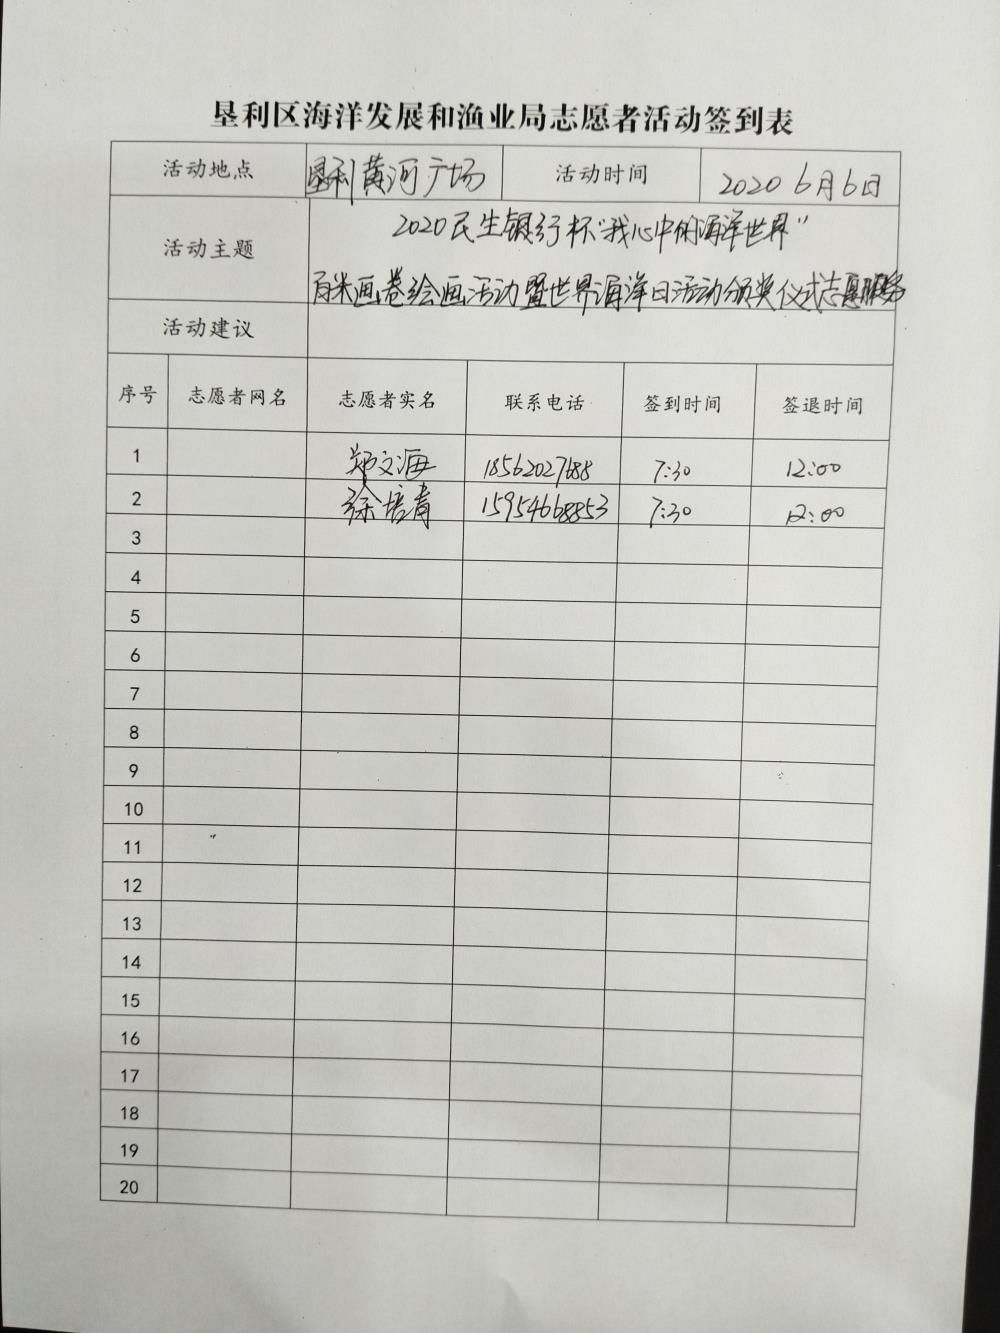 垦利区海洋发展和渔业局志愿者活动签到表
活动地点 垦利黄河广场 活动时间 2020 6月6日
活动主题 2020民生银行杯"我心中的海洋世界"
百米画卷绘画活动暨世界海洋日活动颁奖仪式志愿服务
活动建议
序号 志愿者网名 志愿者实名 联系电话 签到时间 签退时间
1 郑文海 18562027688 7:30 12:00
2 徐培青 15954668853 7:30 12:00
3
4
5
6
7
8
9
10
11
12
13
14
15
16
17
18
19
20